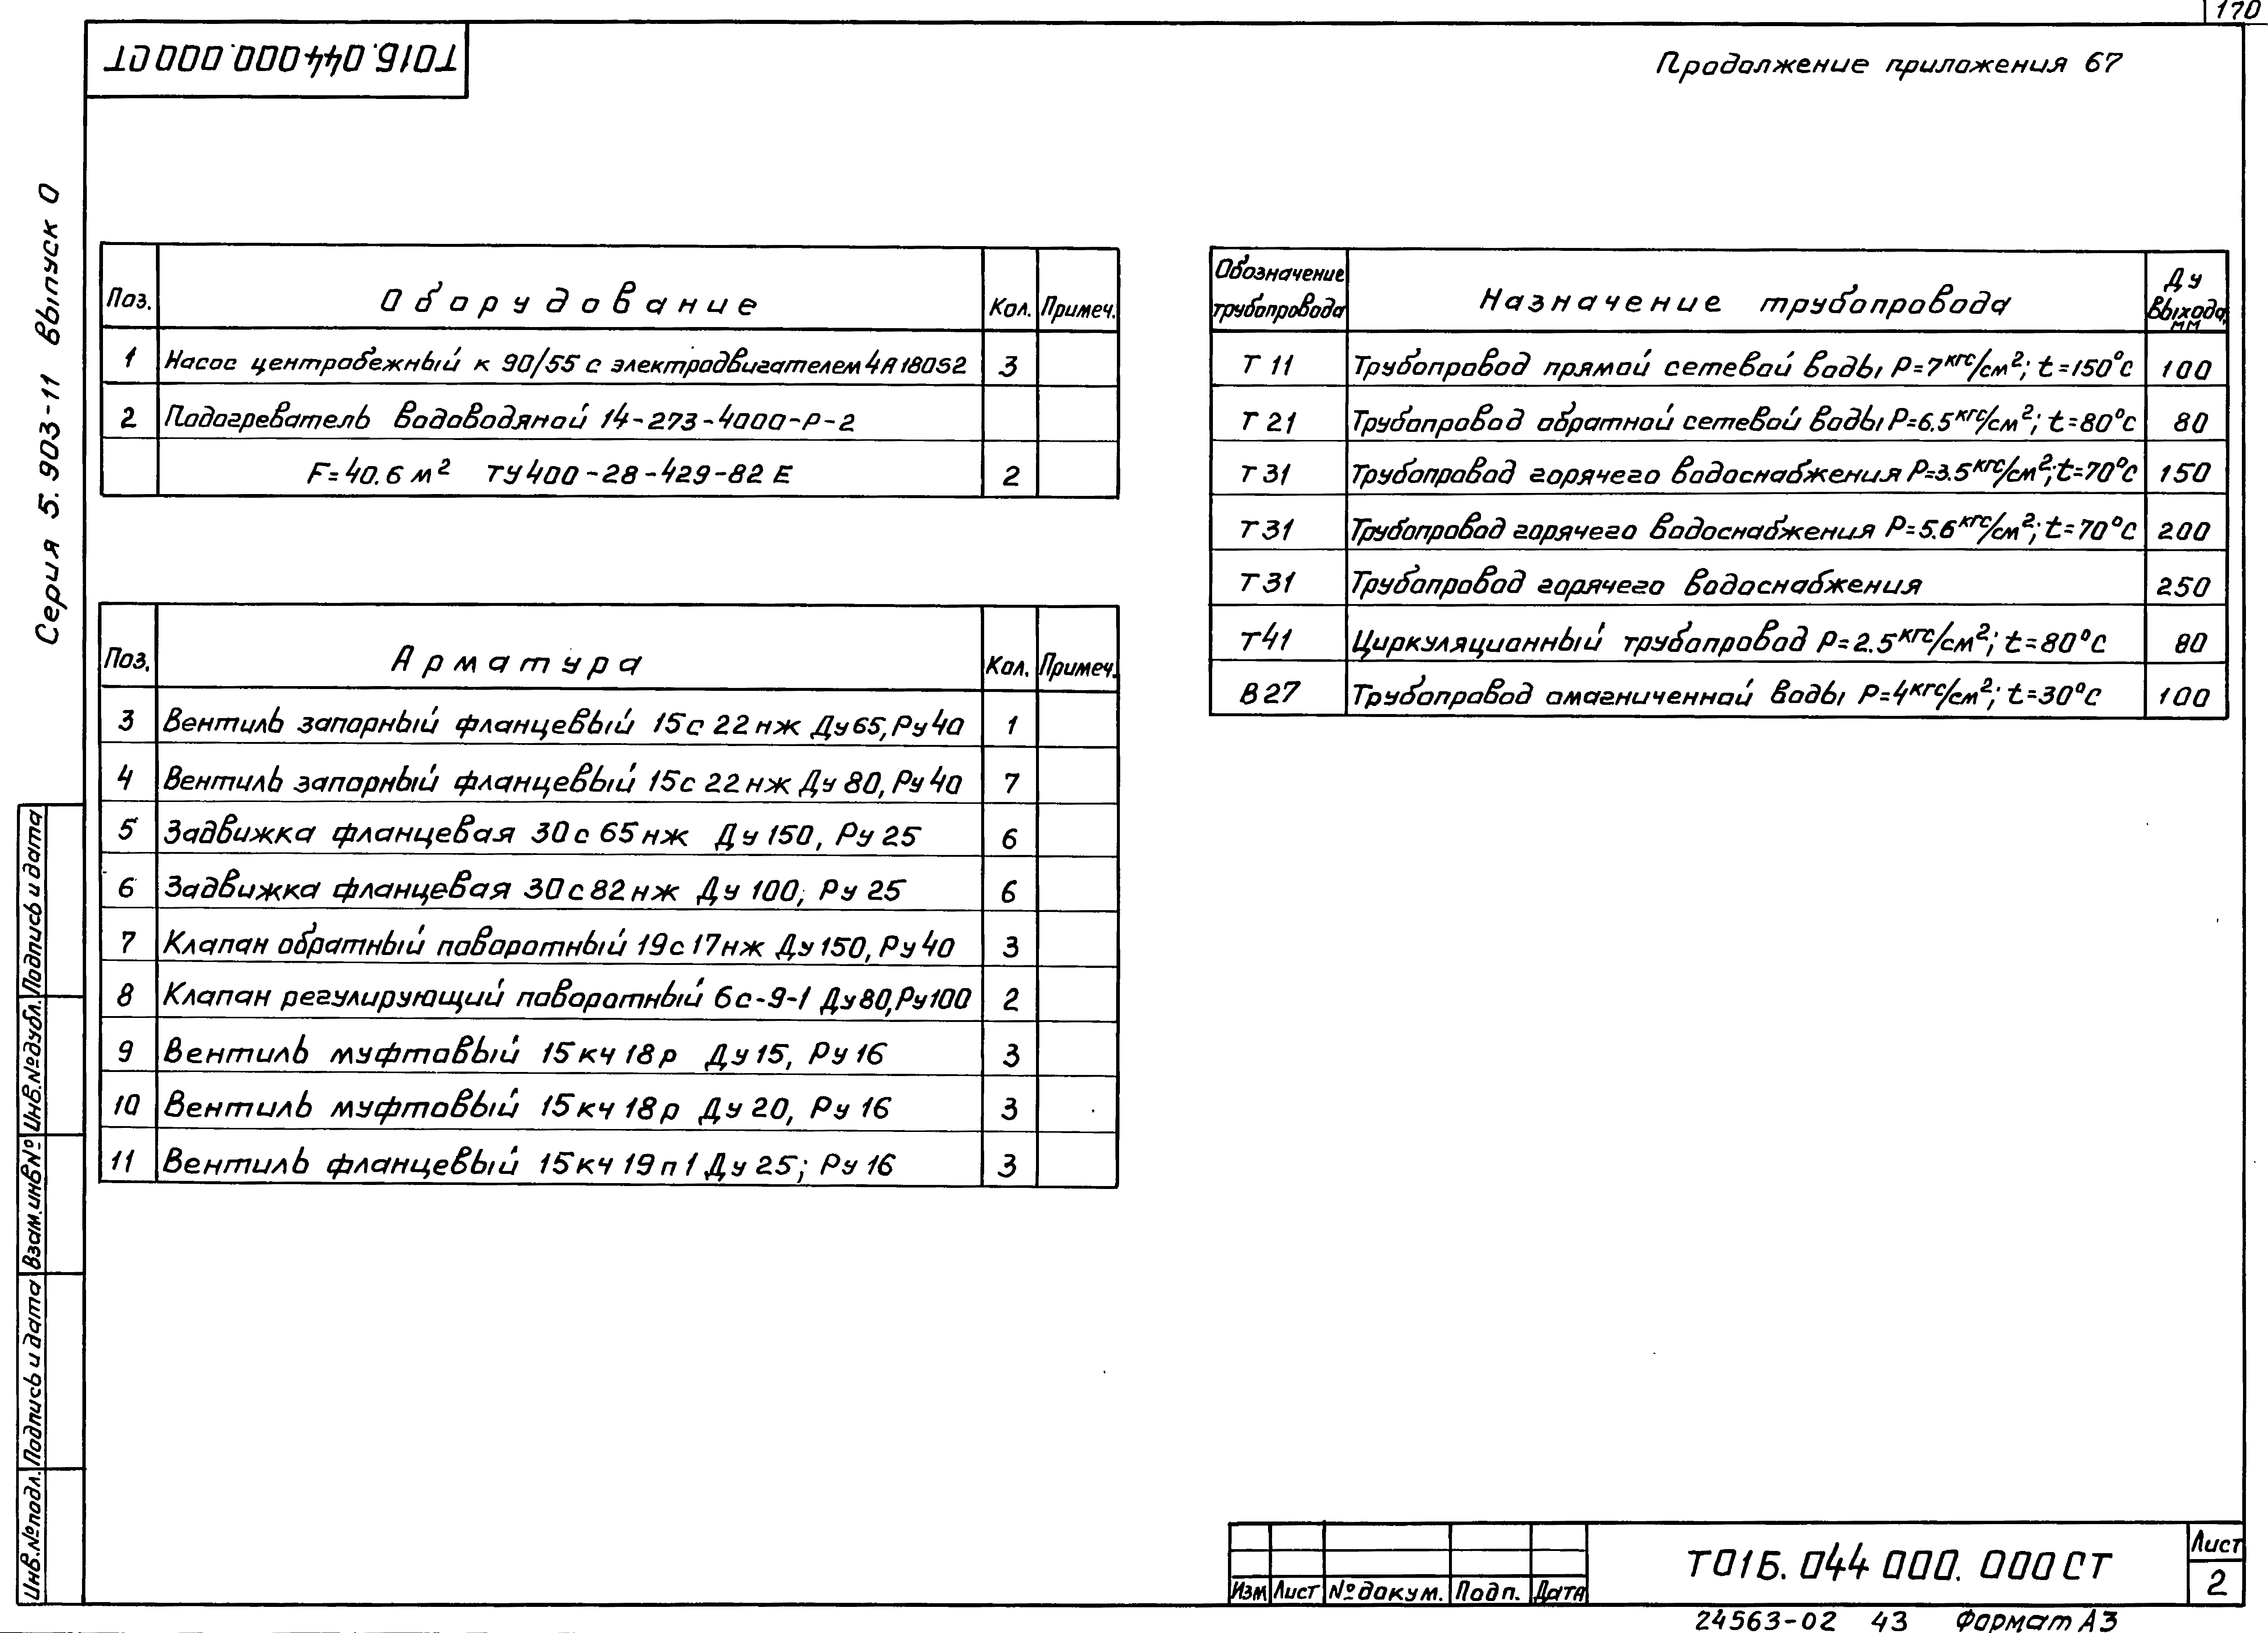 170
Т01Б.044 000. 000 СТ
Продолжение приложения 67
Серия 5.903-11 Выпуск 0
Поз. Оборудование Кол. Примеч.
1 Насос центробежный К 90/55 с электродвигателем 4А180S2 3
2 Подогреватель водоводяной 14-273-4000-Р-2
F=40.6 м² ТУ 400-28-429-82 Е 2
Поз. Арматура Кол. Примеч.
3 Вентиль запорный фланцевый 15с 22нж Ду65, Ру40 1
4 Вентиль запорный фланцевый 15с 22нж Ду 80, Ру 40 7
5 Задвижка фланцевая 30с 65нж Ду 150, Ру 25 6
6 Задвижка фланцевая 30с82нж Ду 100, Ру 25 6
7 Клапан обратный поворотный 19с17нж Ду150, Ру40 3
8 Клапан регулирующий поворотный 6с-9-1 Ду80,Ру100 2
9 Вентиль муфтовый 15кч 18р Ду15, Ру 16 3
10 Вентиль муфтовый 15кч 18р Ду 20, Ру 16 3
11 Вентиль фланцевый 15кч 19п1 Ду 25; Ру 16 3
Обозначение трубопровода Назначение трубопровода Ду выхода, мм
Т 11 Трубопровод прямой сетевой воды Р=7кгс/см²; t=150°С 100
Т 21 Трубопровод обратной сетевой воды Р=6.5кгс/см²; t=80°С 80
Т 31 Трубопровод горячего водоснабжения Р=3.5кгс/см²; t=70°С 150
Т 31 Трубопровод горячего водоснабжения Р=5.6кгс/см²; t=70°С 200
Т 31 Трубопровод горячего водоснабжения 250
Т41 Циркуляционный трубопровод Р=2.5кгс/см²; t=80°С 80
В27 Трубопровод омагниченной воды Р=4кгс/см²; t=30°С 100
Инв.№подл. Подпись и дата Взам.инв№ Инв.№дубл. Подпись и дата
Изм Лист №докум. Подп. Дата
Т01Б. 044 000. 000 СТ
Лист
2
24563-02 43 Формат А3